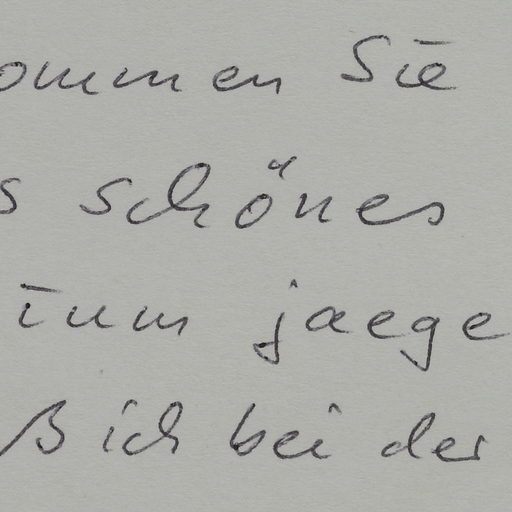 ommen Sie
s schönes
ium jaege
ß ich bei der